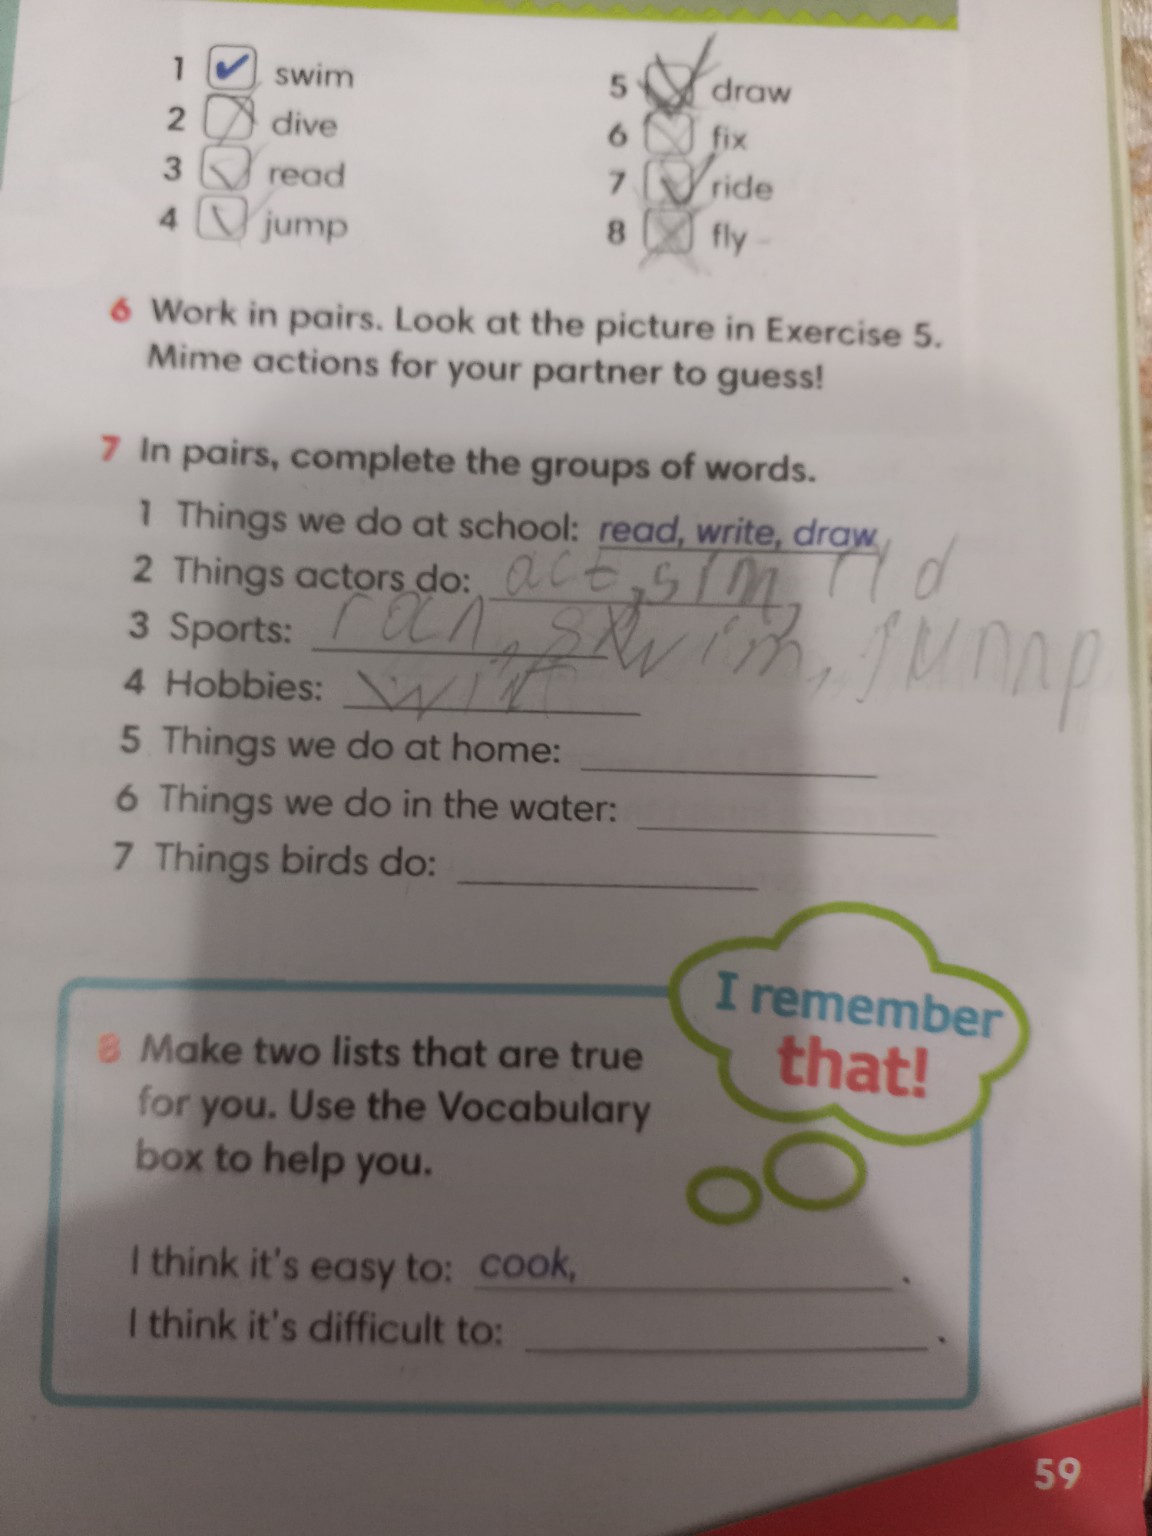 1 ✔ swim
2 dive
3 read
4 jump
5 draw
6 fix
7 ride
8 fly
6 Work in pairs. Look at the picture in Exercise 5.
Mime actions for your partner to guess!
7 In pairs, complete the groups of words.
1 Things we do at school: read, write, draw
2 Things actors do: act, sim,
3 Sports: ran, swim, jump
4 Hobbies:
5 Things we do at home:
6 Things we do in the water:
7 Things birds do:
I remember
that!
8 Make two lists that are true
for you. Use the Vocabulary
box to help you.
I think it's easy to: cook, .
I think it's difficult to: .
59